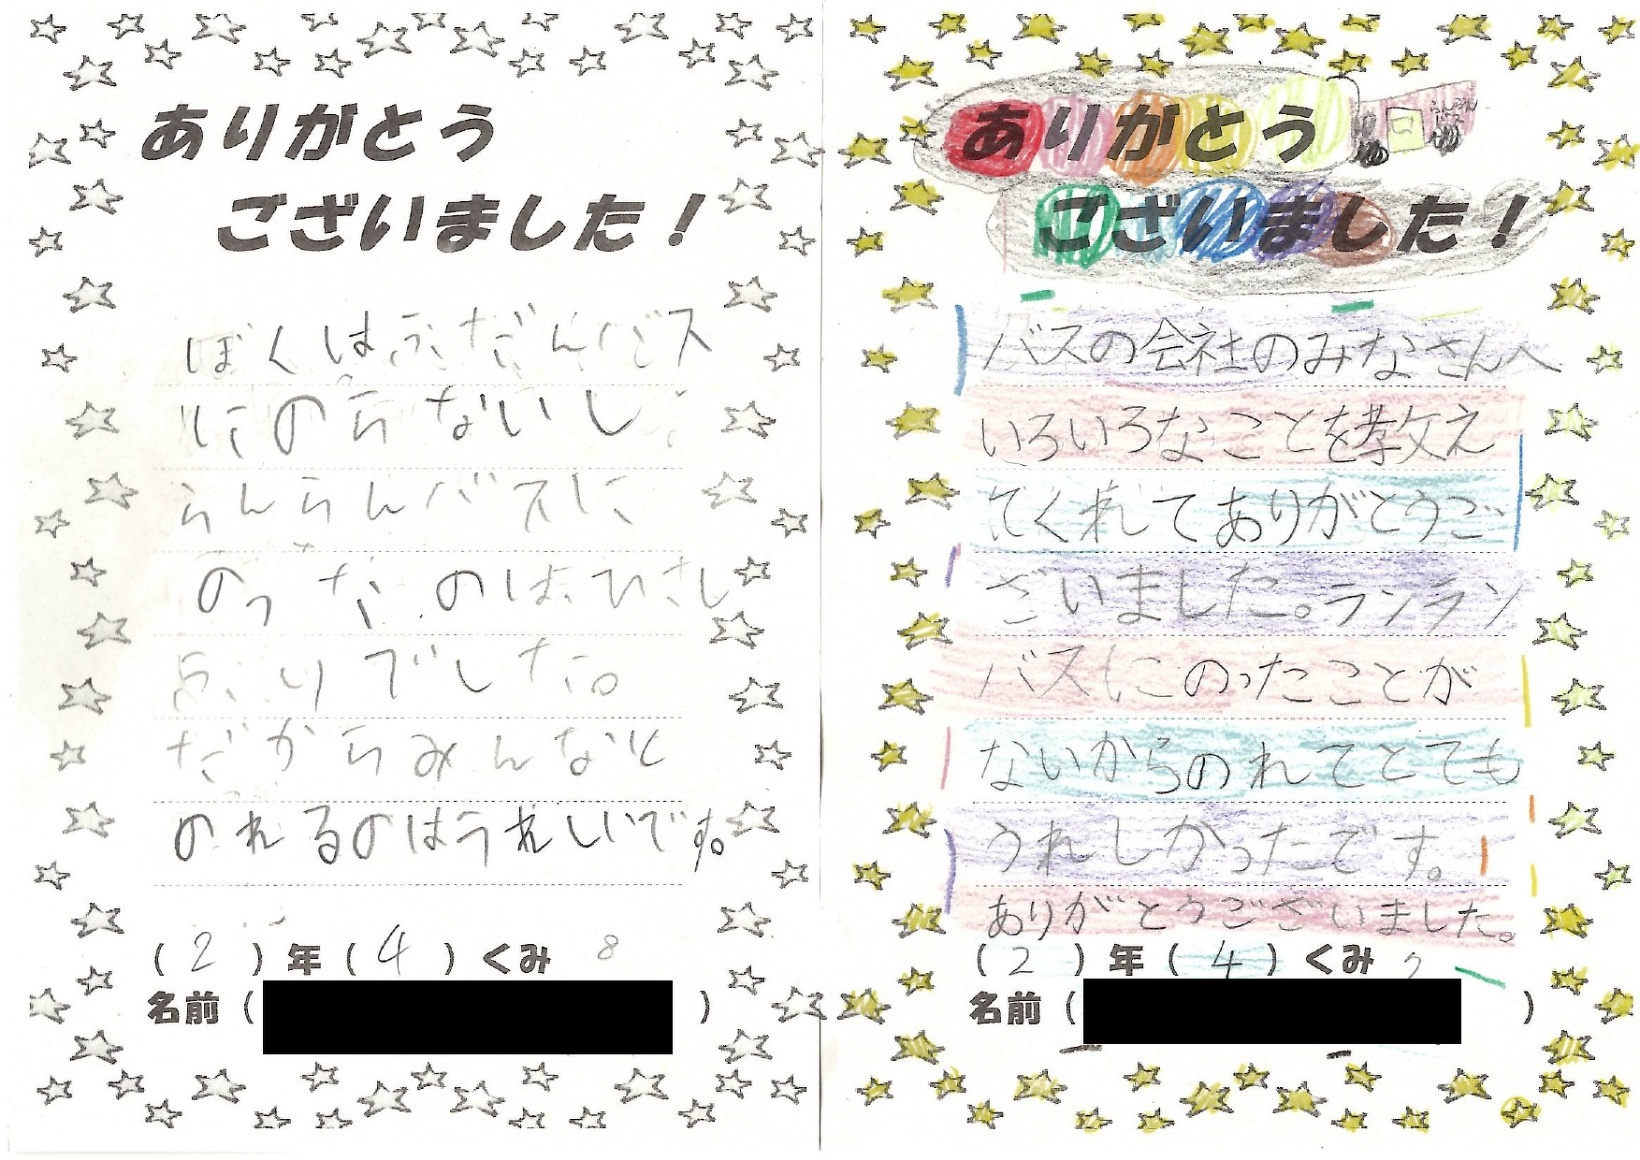 ありがとう
ございました！
ぼくはふだんバス
にのらないし
らんらんバスに
のったのはひさし
ぶりでした。
だからみんなと
のれるのはうれしいです。
(2)年(4)くみ 8
名前( )
ありがとう
らんらん
バス
ございました！
バスの会社のみなさんへ
いろいろなことを教え
てくれてありがとうご
ざいました。ランラン
バスにのったことが
ないからのれてとても
うれしかったです。
ありがとうございました。
(2)年(4)くみ
名前( )